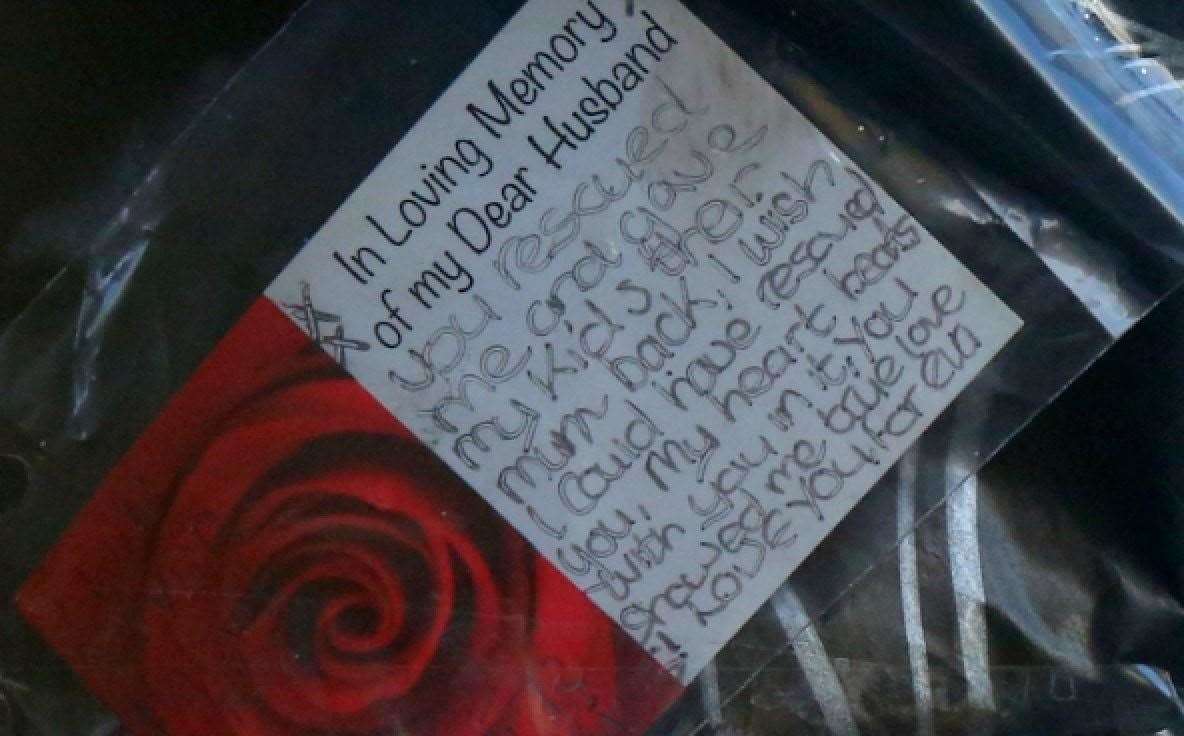 In Loving Memory
of my Dear Husband
you rescued
me and gave
my kids their
mum back, I wish
I could have rescued
you. My heart beats
with you in it, you
showed me true love
LOVE YOU For